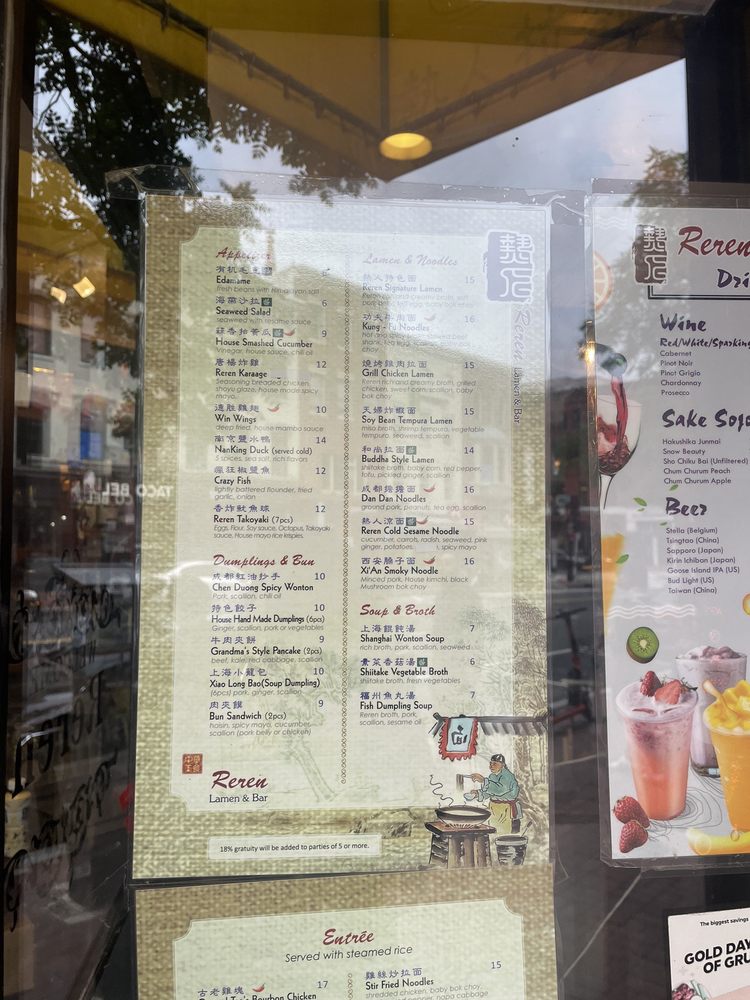 Appetizer
有机毛豆
Edamame
fresh beans with Himalayan salt
海藻沙拉 6
Seaweed Salad
seaweed with sesame sauce
蒜香拍黃瓜 9
House Smashed Cucumber
Vinegar, house sauce, chili oil
唐楊炸雞 12
Reren Karaage
Seasoning breaded chicken,
shoyu glaze, house made spicy
mayo.
遠胜雞翅 10
Win Wings
deep fried, house mambo sauce
南京鹽水鴨 14
NanKing Duck (served cold)
5 spices, sea salt, rich flavors
瘋狂椒鹽魚 12
Crazy Fish
lightly battered flounder, fried
garlic, onion
香炸魷魚球 12
Reren Takoyaki (7pcs)
Eggs, Flour, Soy sauce, Octopus, Takoyaki
sauce, House mayo rice krispies.
Dumplings & Bun
成都紅油抄手 10
Chen Duong Spicy Wonton
Pork, scallion, chili oil
特色餃子 10
House Hand Made Dumplings (6pcs)
Ginger, scallion, pork or vegetables
牛肉夾餅 9
Grandma's Style Pancake (2pcs)
beef, kale, red cabbage, scallion
上海小籠包 10
Xiao Long Bao(Soup Dumpling)
(6pcs) pork, ginger, scallion
肉夾饃 9
Bun Sandwich (2pcs)
hoisin, spicy mayo, cucumber,
scallion (pork belly or chicken)
Reren
Lamen & Bar
Lamen & Noodles
熱人特色面 15
Reren Signature Lamen
功夫牛肉面 16
Kung - Fu Noodles
燒烤雞肉拉面 15
Grill Chicken Lamen
Reren rich and creamy broth, grilled
chicken, sweet corn, scallion, baby
bok choy
天婦炸蝦面 15
Soy Bean Tempura Lamen
miso broth, shrimp tempura, vegetable
tempura, seaweed, scallion
和尚拉面 14
Buddha Style Lamen
shiitake broth, baby corn, red pepper,
tofu, pickled ginger, scallion
成都擔擔面 16
Dan Dan Noodles
ground pork, peanuts, tea egg, scallion
熱人涼面 15
Reren Cold Sesame Noodle
cucumber, carrots, radish, seaweed, pink
ginger, potatoes, spicy mayo
西安臊子面 16
Xi'An Smoky Noodle
Minced pork, House kimchi, black
Mushroom bok choy
Soup & Broth
上海餛飩湯 7
Shanghai Wonton Soup
rich broth, pork, scallion, seaweed
素菜香菇湯 6
Shiitake Vegetable Broth
shiitake broth, fresh vegetables
福州魚丸湯 7
Fish Dumpling Soup
Reren broth, pork,
scallion, sesame oil
熱人
Reren
Lamen & Bar
18% gratuity will be added to parties of 5 or more.
Entrée
Served with steamed rice
古老雞塊 17
Bourbon Chicken
雞絲炒拉面 15
Stir Fried Noodles
shredded chicken, baby bok choy,
napa cabbage
熱人
Reren
Dri
Wine
Red/White/Sparking
Cabernet
Pinot Noir
Pinot Grigio
Chardonnay
Prosecco
Sake Soju
Hakushika Junmai
Snow Beauty
Sho Chiku Bai (Unfiltered)
Chum Churum Peach
Chum Churum Apple
Beer
Stella (Belgium)
Tsingtao (China)
Sapporo (Japan)
Kirin Ichiban (Japan)
Goose Island IPA (US)
Bud Light (US)
Taiwan (China)
The biggest savings
GOLD DAY
OF GRU
TACO BELL